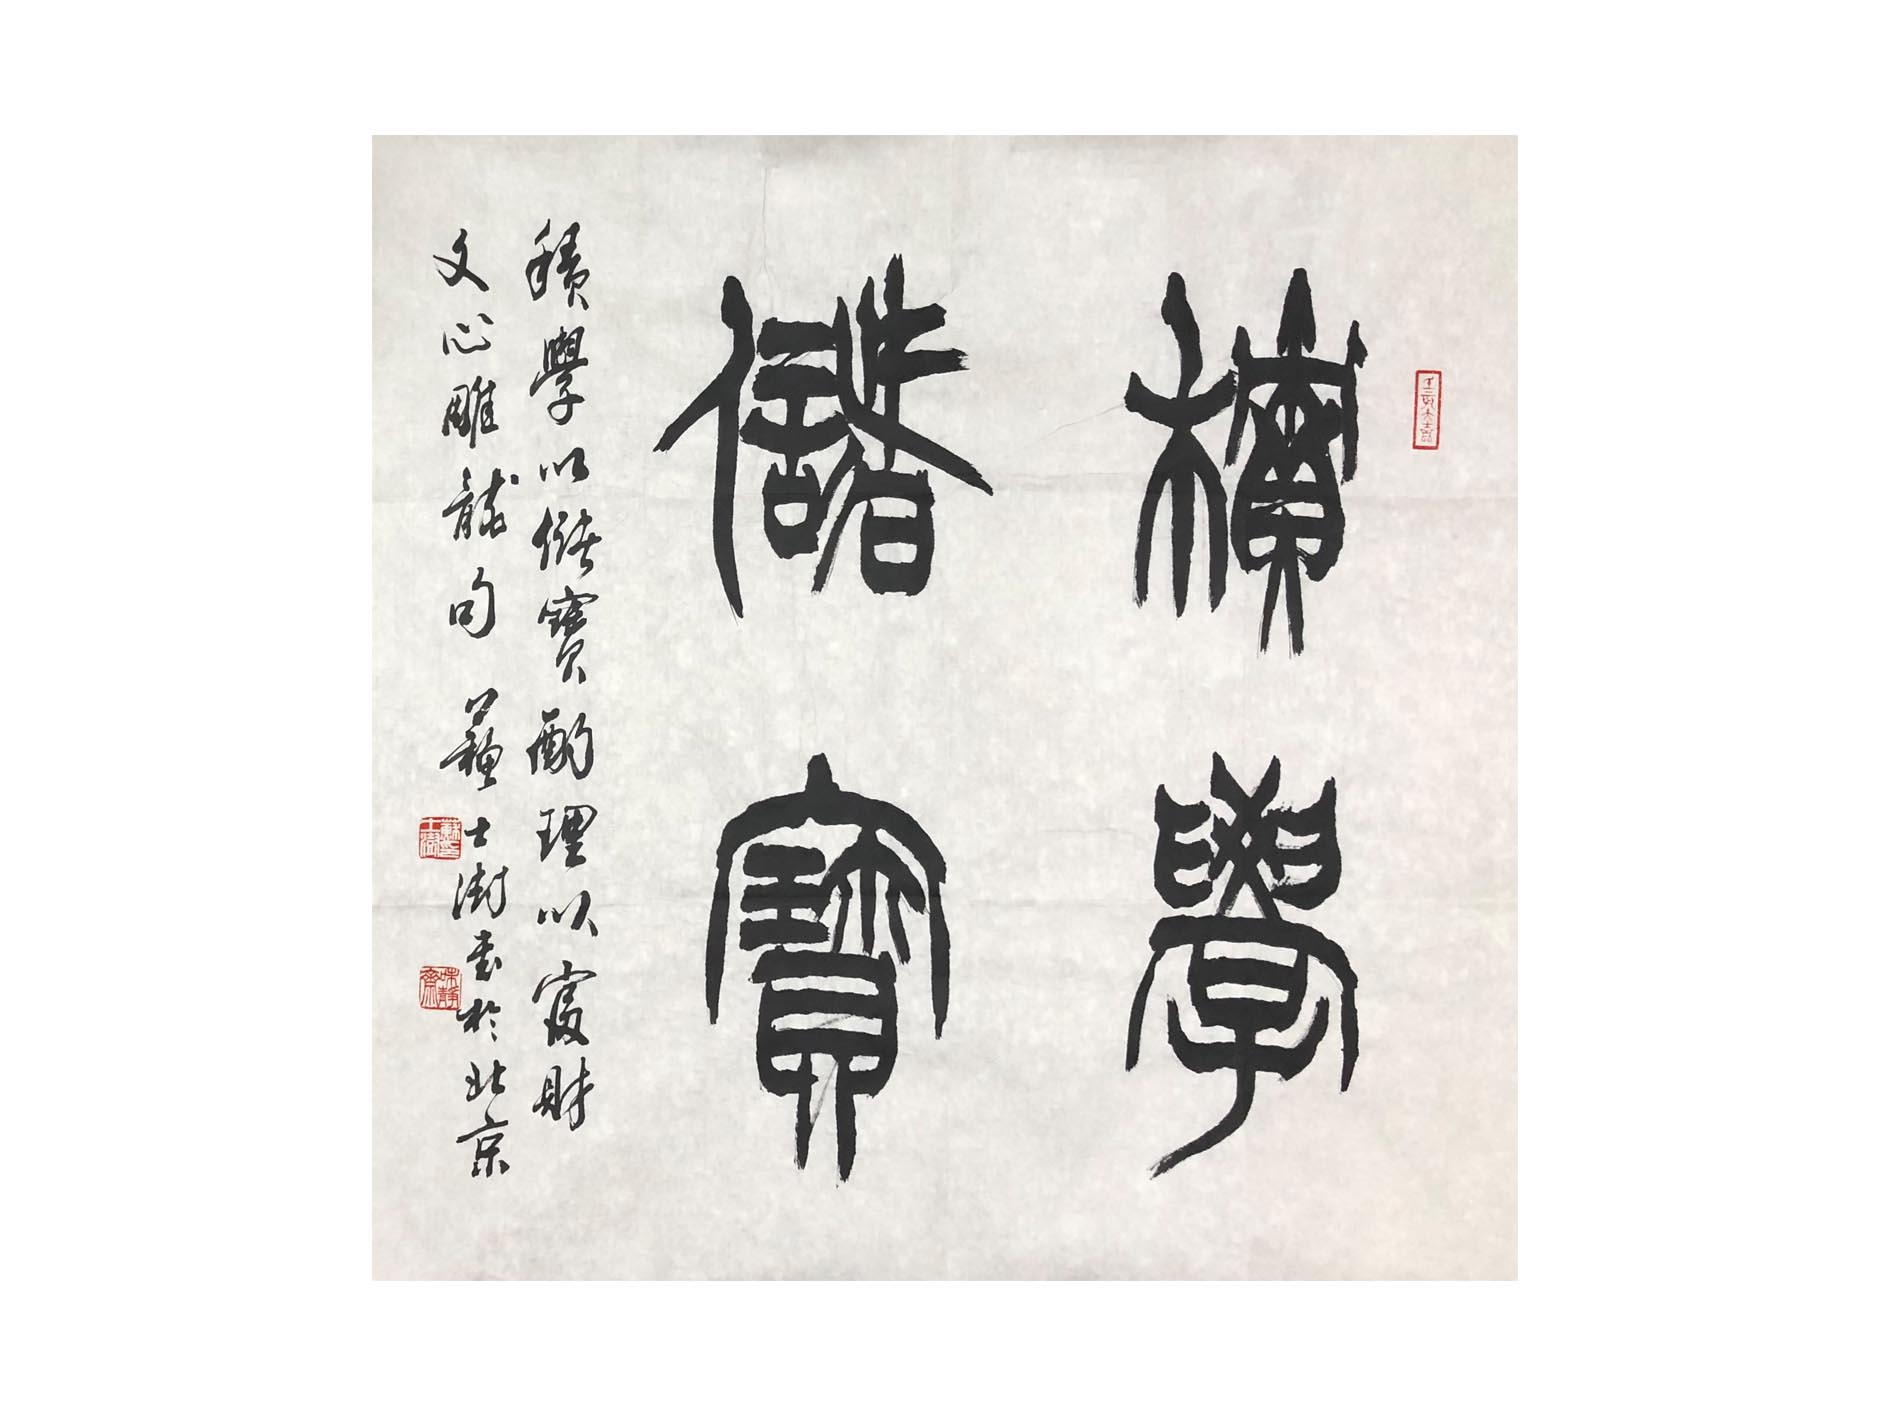 積學
儲寶
積學以儲寶酌理以富財
文心雕龍句 蘇士澍書於北京
蘇士澍